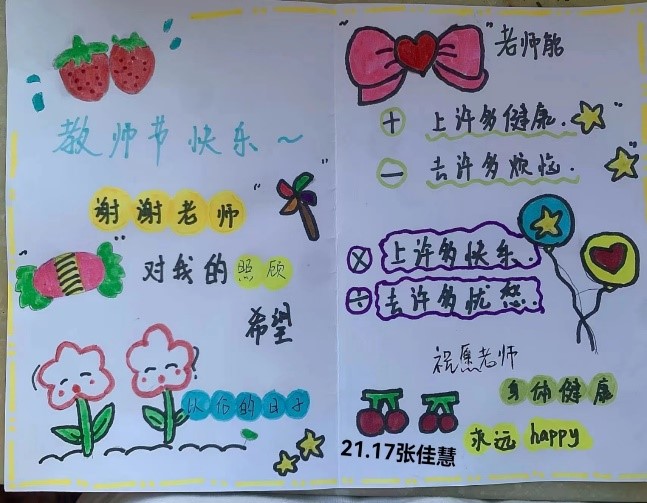 教师节快乐~
谢谢老师
对我的照顾
希望
以后的日子
老师能
+ 上许多健康.
- 去许多烦恼.
× 上许多快乐.
÷ 去许多忧愁.
祝愿老师
身体健康
永远 happy
21.17张佳慧